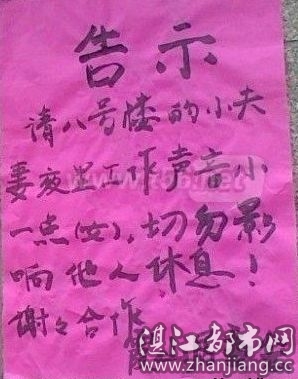 告示
请八号楼的小夫
妻夜里工作声音小
一点(女),切勿影
响他人休息!
谢々合作
湛江都市网
www.zhanjiang.cc